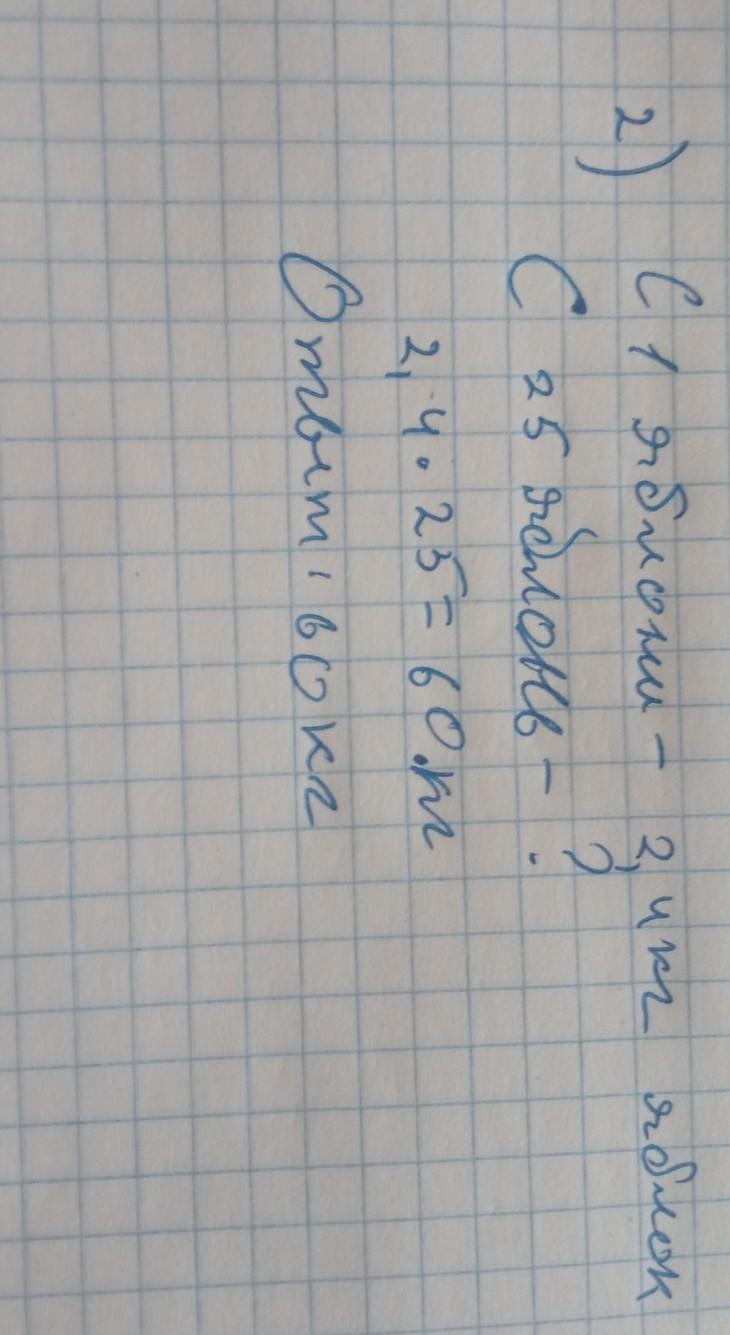 2) С 1 яблони - 2,4кг яблок
С 25 яблонь - ?
2,4 · 25 = 60 кг
Ответ: 60 кг